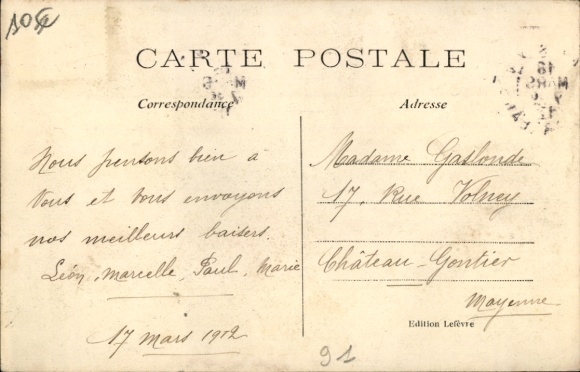 CARTE POSTALE
Correspondance
Adresse
Nous pensons bien à
vous et vous envoyons
nos meilleurs baisers.
Léon, Marcelle, Paul, Marie
17 mars 1912
Madame Gaslonde
17, Rue Volney
Château-Gontier
Mayenne
Edition Lefèvre
91